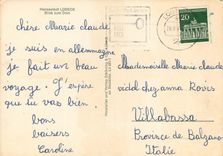 Hansestadt LÜBECK
Blick zum Dom
20
chère Marie claude
je suis en allemagne
je fait un beau
voyage. J'espère
que tu vas bien.
bons
baisers
Caroline
Mademoiselle Marie claude
vidal chez anna Rovis
Villabassa
Province de Bolzano
Italie